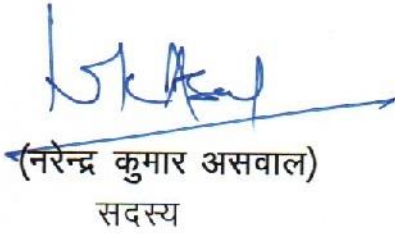 (नरेन्द्र कुमार असवाल)
सदस्य